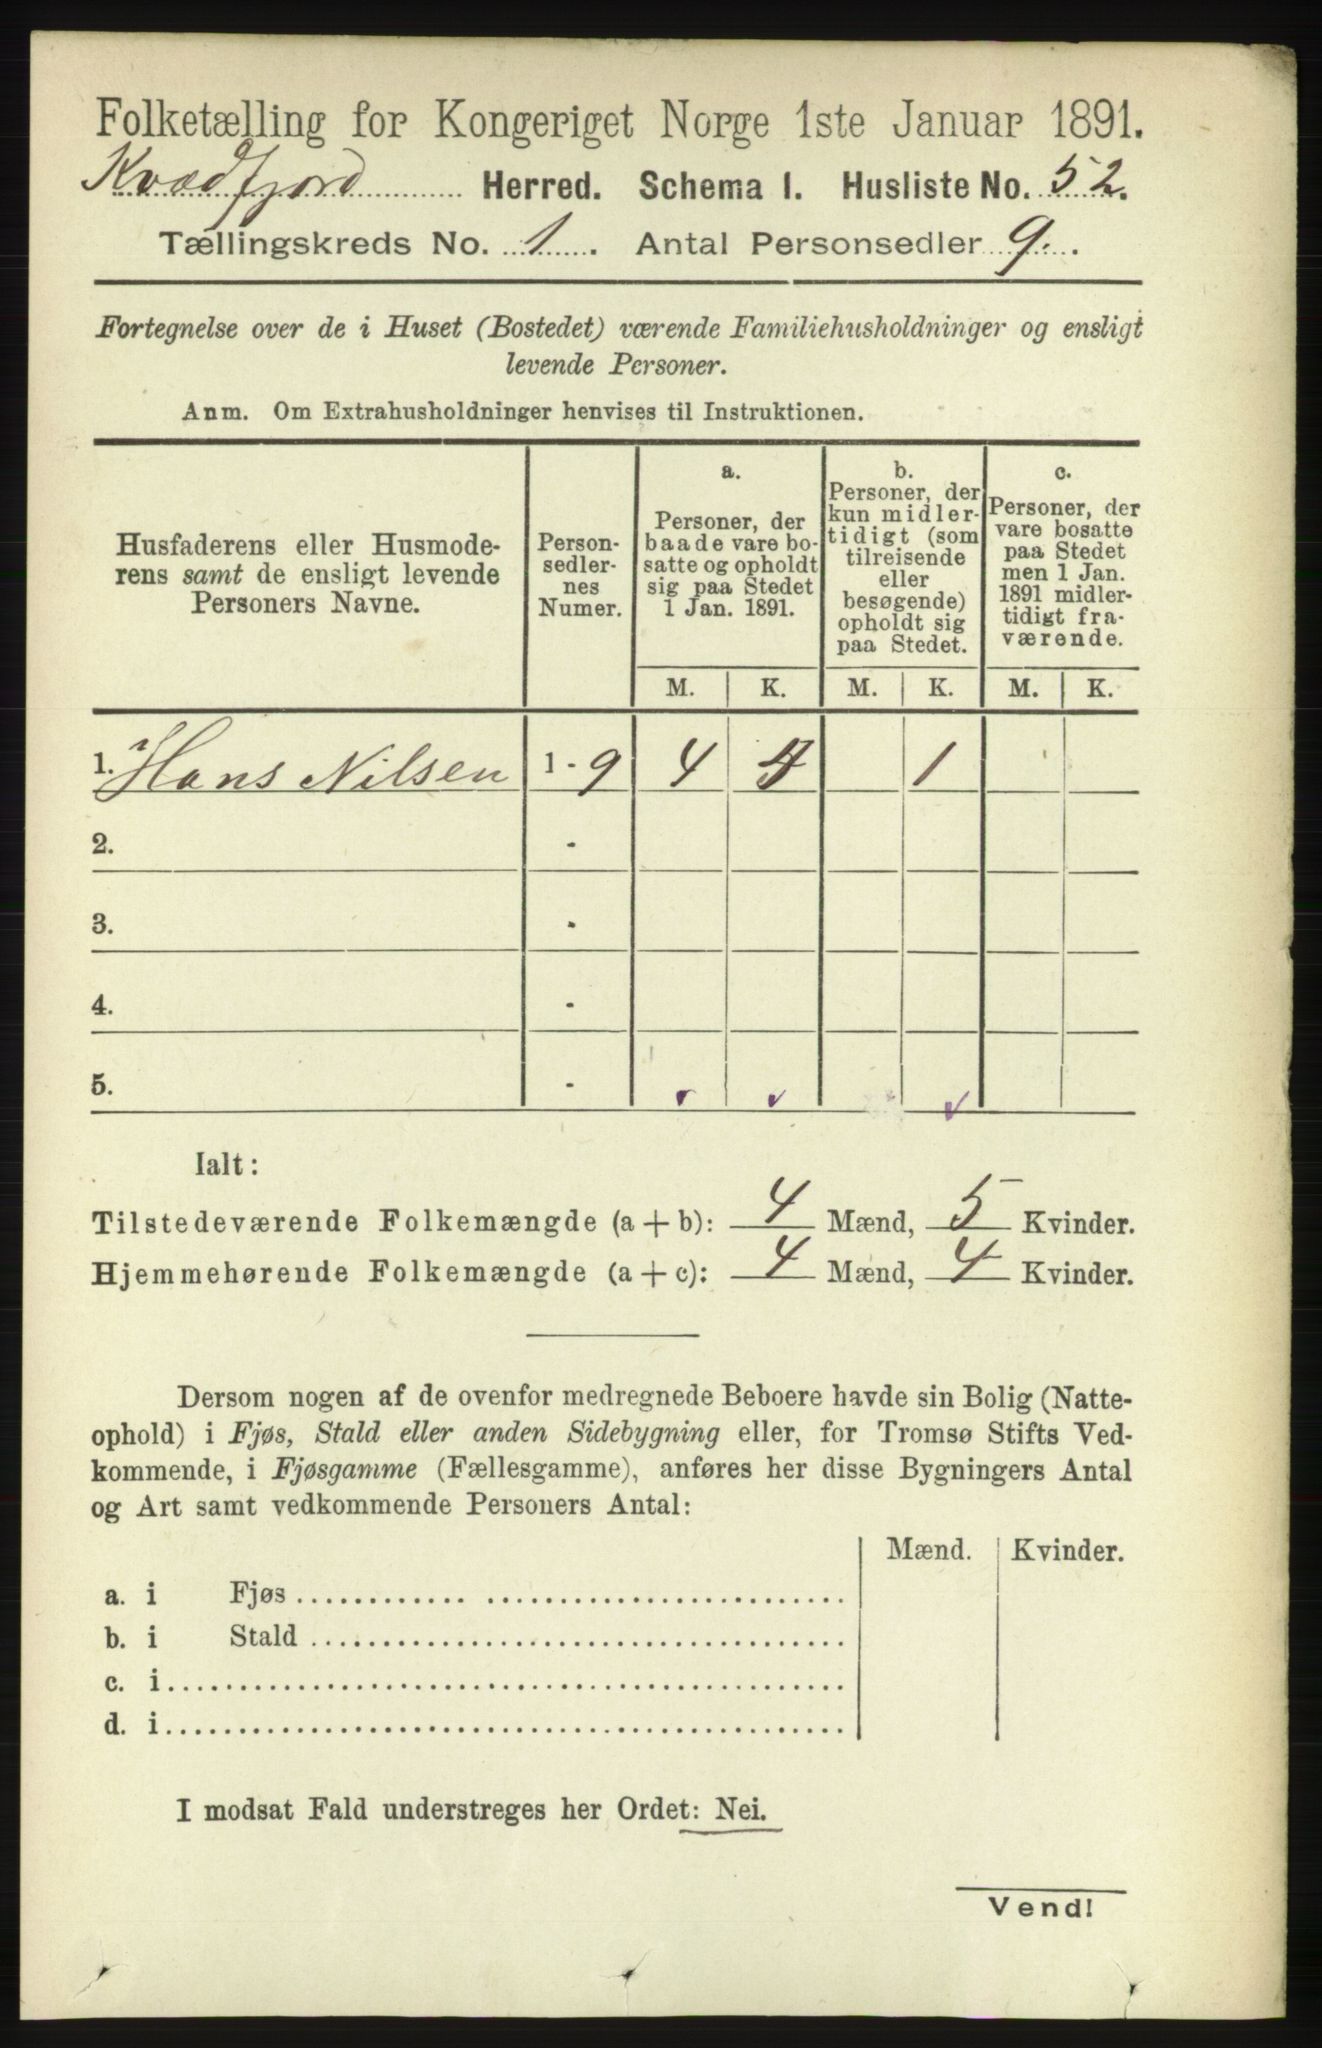 Folketælling for Kongeriget Norge 1ste Januar 1891.
Kvædfjord Herred. Schema I. Husliste No. 52.
Tællingskreds No. 1. Antal Personsedler 9.
Fortegnelse over de i Huset (Bostedet) værende Familiehusholdninger og ensligt
levende Personer.
Anm. Om Extrahusholdninger henvises til Instruktionen.
Husfaderens eller Husmode-
rens samt de ensligt levende
Personers Navne.
Person-
sedler-
nes
Numer.
a.
Personer, der
baade vare bo-
satte og opholdt
sig paa Stedet
1 Jan. 1891.
b.
Personer, der
kun midler-
tidigt (som
tilreisende
eller
besøgende)
opholdt sig
paa Stedet.
c.
Personer, der
vare bosatte
paa Stedet
men 1 Jan.
1891 midler-
tidigt fra-
værende.
M. K. M. K. M. K.
1. Hans Nilsen 1 - 9 4 4 1
2. -
3. -
4. -
5. -
Ialt:
Tilstedeværende Folkemængde (a + b): 4 Mænd, 5 Kvinder.
Hjemmehørende Folkemængde (a + c): 4 Mænd, 4 Kvinder.
Dersom nogen af de ovenfor medregnede Beboere havde sin Bolig (Natte-
ophold) i Fjøs, Stald eller anden Sidebygning eller, for Tromsø Stifts Ved-
kommende, i Fjøsgamme (Fællesgamme), anføres her disse Bygningers Antal
og Art samt vedkommende Personers Antal:
Mænd. Kvinder.
a. i Fjøs
b. i Stald
c. i
d. i
I modsat Fald understreges her Ordet: Nei.
Vend!